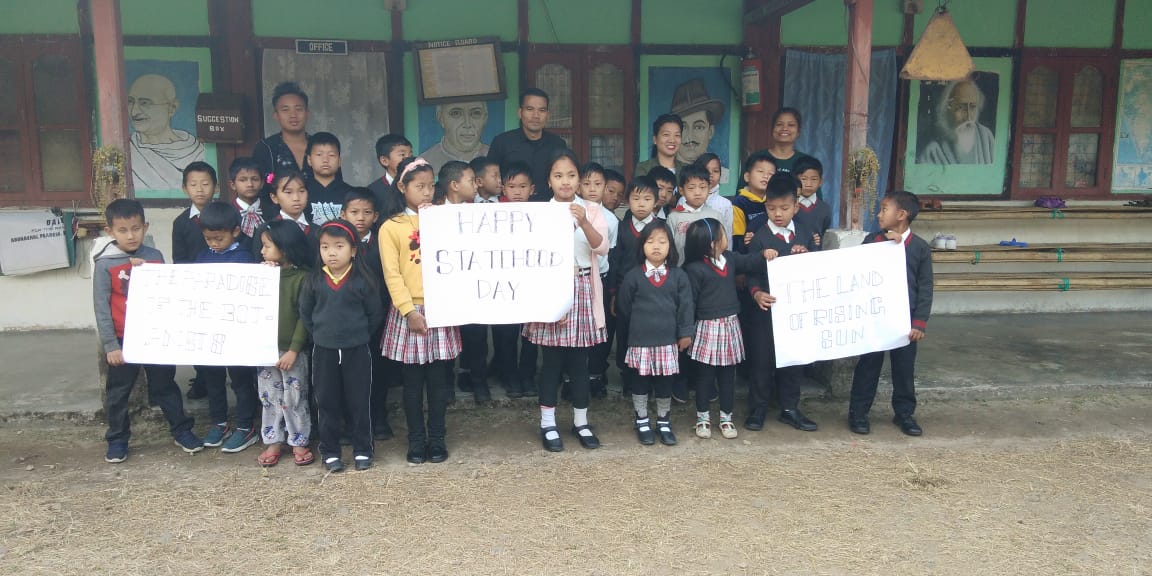 OFFICE
NOTICE BOARD
SUGGESTION
BOX
ARUNACHAL PRADESH
THE PARADISE
OF THE BOT-
ANISTS
HAPPY
STATEHOOD
DAY
THE LAND
OF RISING
SUN